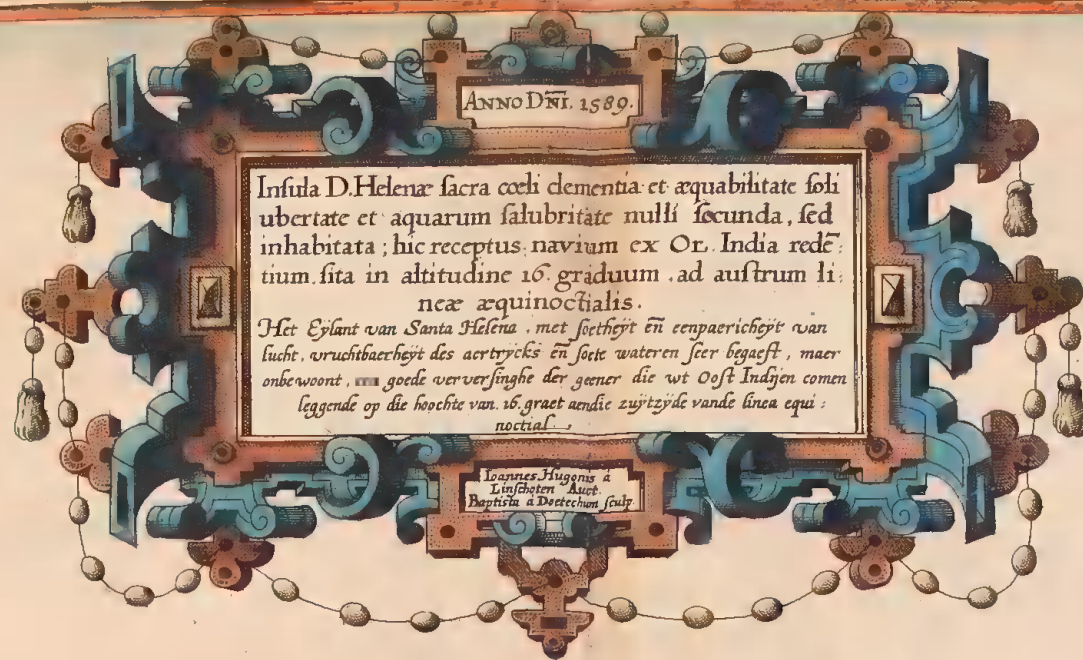 ANNO DN̅I̅. 1589.
Inſula D. Helenæ ſacra cœli clementia et æquabilitate ſoli
ubertate et aquarum ſalubritate nulli ſecunda, ſed
inhabitata; hic receptus navium ex Or. India redē:
tium. ſita in altitudine 16. graduum . ad auſtrum li:
neæ æquinoctialis.
Het Eÿlant van Santa Helena . met ſoetheÿt en̄ eenpaericheÿt van
lucht, vruchtbaerheÿt des aertrÿcks en̄ ſoete wateren ſeer begaeft, maer
onbewoont, goede ververſinghe der geener die wt Ooſt Indÿen comen
leggende op die hoochte van. 16. graet aendie zuÿtzÿde vande linea equi:
noctial.
Ioannes Hugonis à
Linſchoten Auct.
Baptiſta à Doetechum ſculp.